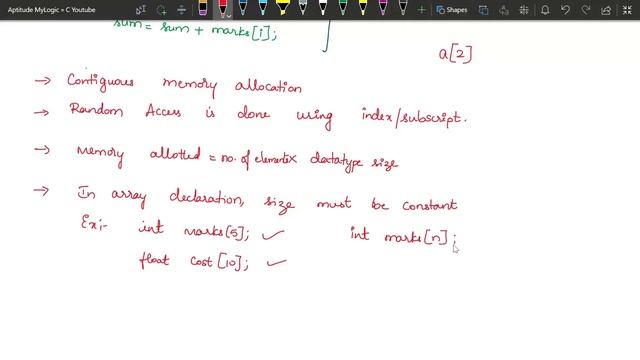 Aptitude MyLogic » C Youtube
Shapes
sum = sum + marks[i];
a[2]
→ Contiguous memory allocation
→ Random Access is done using index/subscript.
→ Memory allotted = no. of elements x datatype size
→ In array declaration, size must be constant
Ex:- int marks[5]; ✓ int marks[n];
float cost[10]; ✓